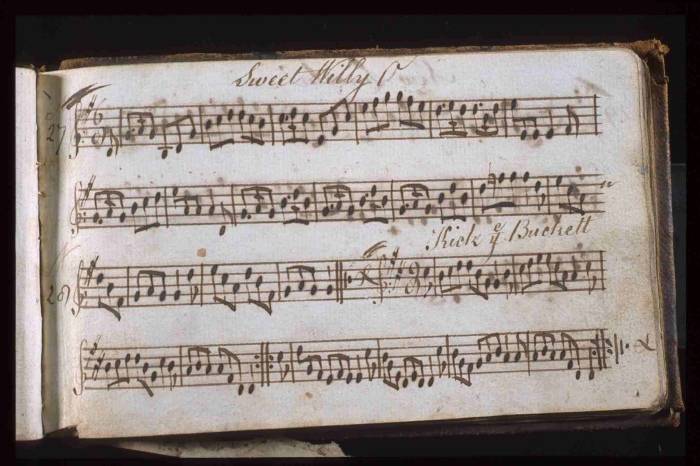 Sweet Willy O
27
Kick ye Buckett
28